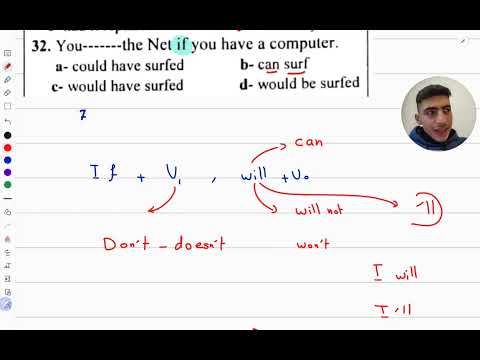 32. You-------the Net if you have a computer.
a- could have surfed b- can surf
c- would have surfed d- would be surfed
can
If + V1 , will + V0
will not 'll
Don't - doesn't won't
I will
I'll